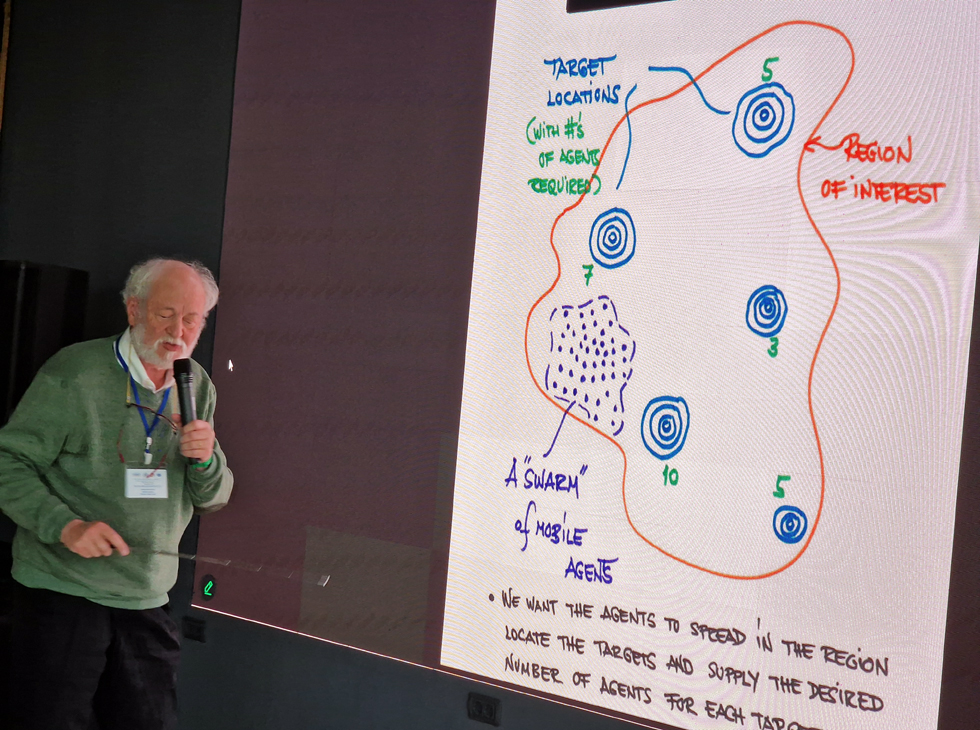 TARGET
LOCATIONS
(WITH #'S
OF AGENTS
REQUIRED)
5
REGION
OF INTEREST
7
3
10
5
A "SWARM"
of MOBILE
AGENTS
• WE WANT THE AGENTS TO SPREAD IN THE REGION
LOCATE THE TARGETS AND SUPPLY THE DESIRED
NUMBER OF AGENTS FOR EACH